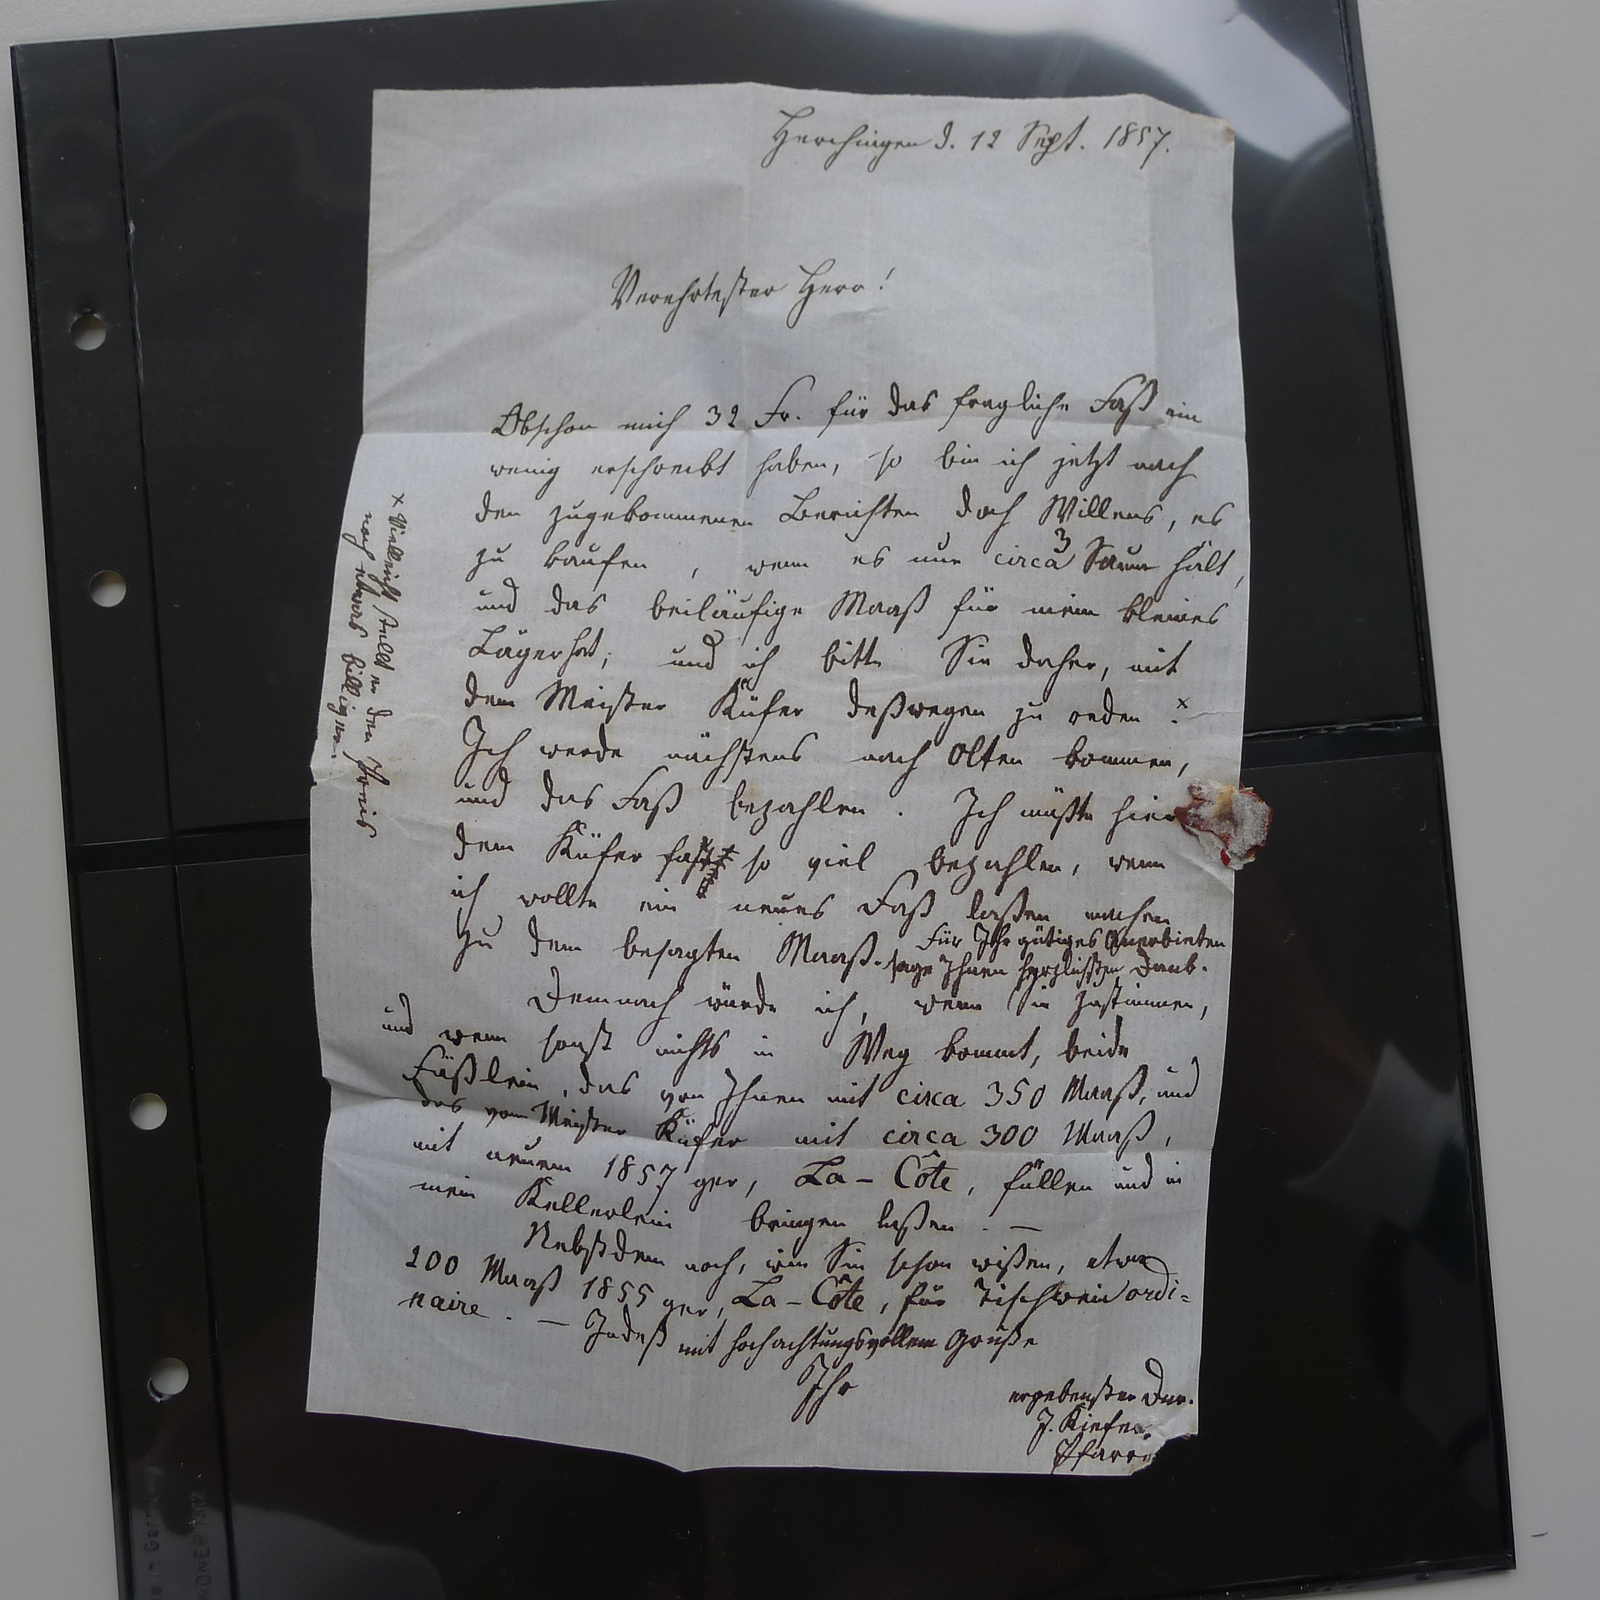 Herchingen d. 12 Sept. 1857.
Verehrtester Herr!
Obschon mich 32 Fr. für das fragliche Faß ein
wenig erschreckt haben, so bin ich jetzt nach
den zugekommenen Berichten doch Willens, es
zu kaufen, wenn es nur circa 3 Saum hält,
und das beiläufige Maaß für mein kleines
Läger hat; und ich bitte Sie daher, mit
dem Meister Küfer deßwegen zu reden. x
Ich werde nächstens nach Olten kommen,
und das Faß bezahlen. Ich müßte hier
dem Küfer fast so viel bezahlen, wenn
ich wollte ein neues Faß laßen machen
zu dem besagten Maaß. Für Ihr gütiges Anerbieten
sage Ihnen herzlichsten Dank.
Demnach würde ich, wenn Sie zustimmen,
und wenn sonst nichts in Weg kommt, beide
Fäßlein, das von Ihnen mit circa 350 Maaß, und
das vom Meister Küfer mit circa 300 Maaß,
mit neuem 1857ger, La-Côte, füllen und in
mein Kellerlein bringen laßen. —
Nebstdem noch, wie Sie schon wißen, etwa
200 Maaß 1855ger, La-Côte, für Tischwein ordi=
naire. — Indeß mit hochachtungsvollem Gruße
Ihr
ergebenster Dnr.
J. Kiefer
Pfarrer
x Vielleicht stellt er den Preis
noch etwas billiger.